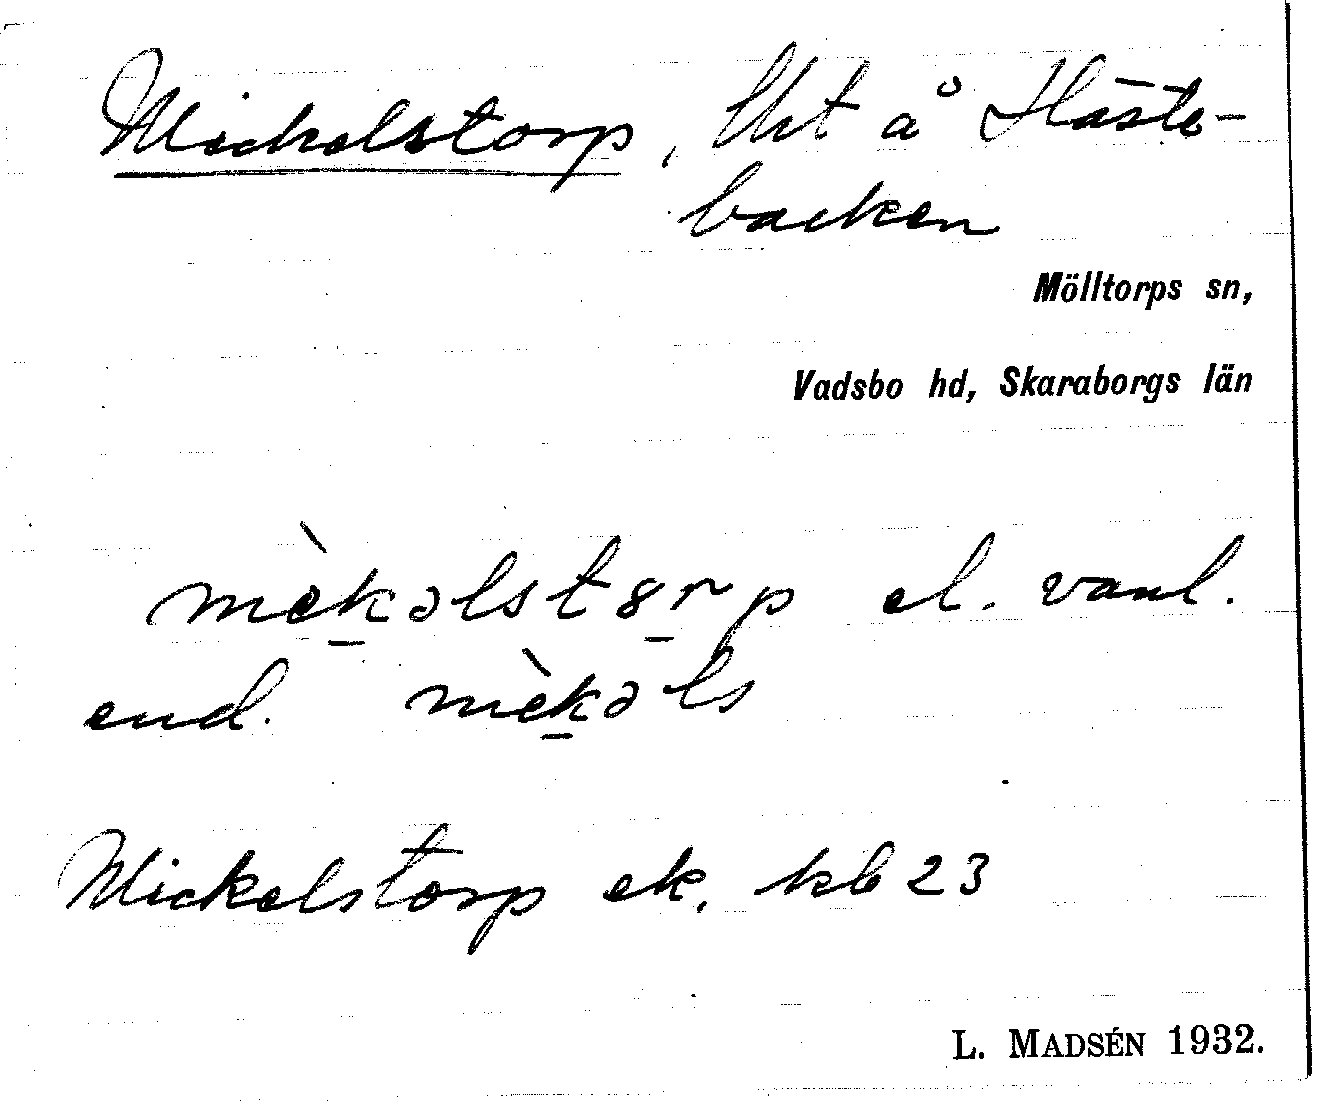 Mickelstorp, lht å Häste-
backen
Mölltorps sn,
Vadsbo hd, Skaraborgs län
mèkəlstərp el. vanl.
end. mèkəls
Mickelstorp ek. kb 23
L. MADSÉN 1932.